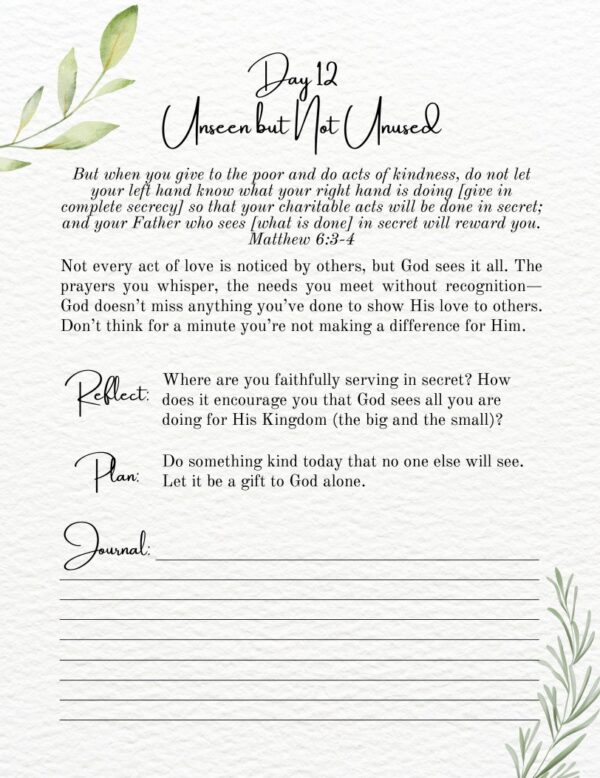 Day 12
Unseen but Not Unused
But when you give to the poor and do acts of kindness, do not let
your left hand know what your right hand is doing [give in
complete secrecy] so that your charitable acts will be done in secret;
and your Father who sees [what is done] in secret will reward you.
Matthew 6:3-4
Not every act of love is noticed by others, but God sees it all. The
prayers you whisper, the needs you meet without recognition—
God doesn't miss anything you've done to show His love to others.
Don't think for a minute you're not making a difference for Him.
Reflect: Where are you faithfully serving in secret? How
does it encourage you that God sees all you are
doing for His Kingdom (the big and the small)?
Plan: Do something kind today that no one else will see.
Let it be a gift to God alone.
Journal: